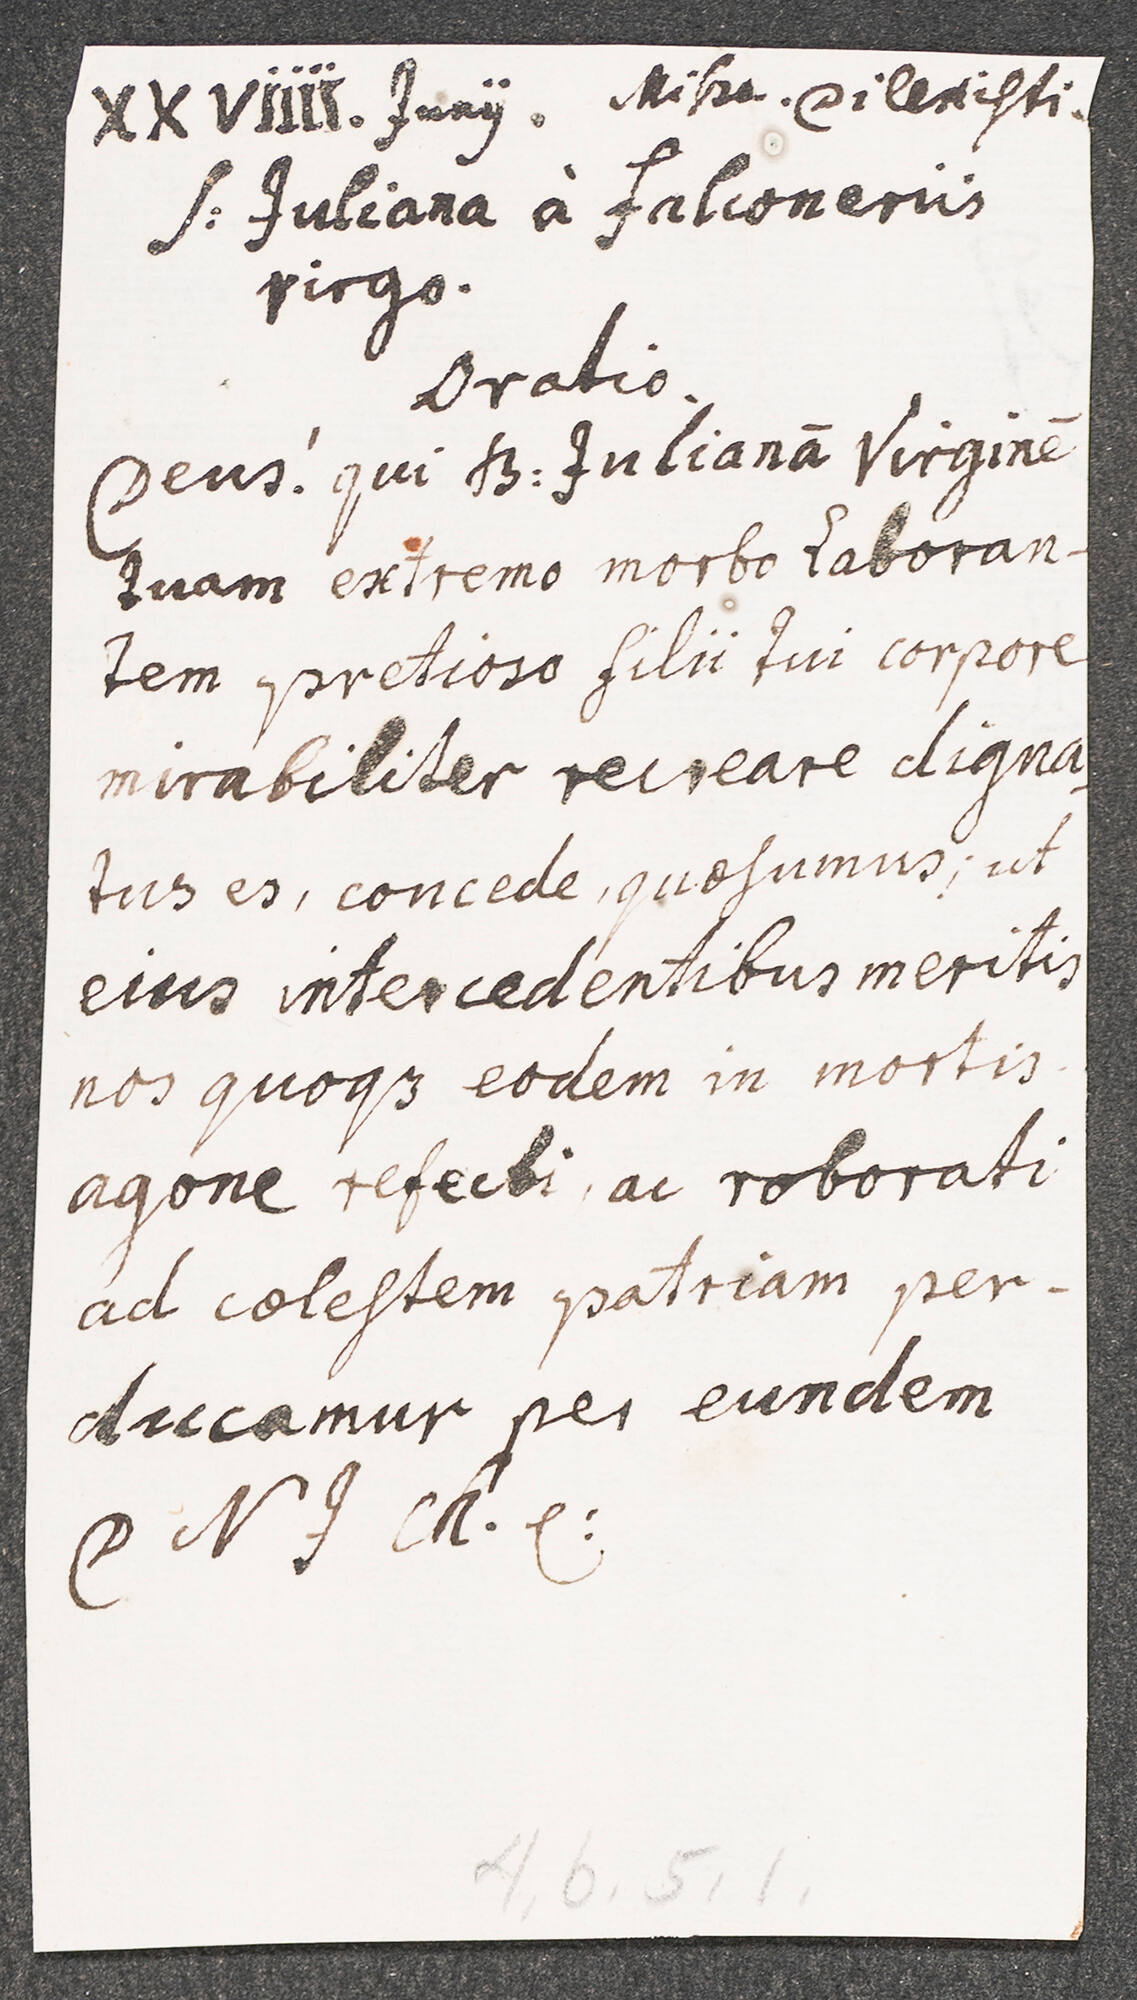 XXVIIII. Junÿ. Missa. Dilexisti.
S: Juliana à Falconeriis
virgo.
Oratio.
Deus! qui B: Julianā Virginē
tuam extremo morbo laboran-
tem pretioso filii tui corpore
mirabiliter recreare digna-
tus es, concede, quæsumus; ut
eius intercedentibus meritis
nos quoqꝫ eodem in mortis
agone refecti, ac roborati
ad cœlestem patriam per-
ducamur per eundem
D N J Ch. e:
4.6.5.1.